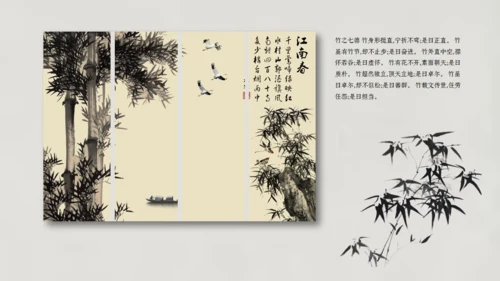 江南春
千里鶯啼綠映紅
水村山郭酒旗風
南朝四百八十寺
多少樓台烟雨中
竹之七德 竹身形挺直,宁折不弯;是曰正直。 竹
虽有竹节,却不止步;是曰奋进。 竹外直中空,襟
怀若谷;是曰虚怀。 竹有花不开,素面朝天;是曰
质朴。 竹超然独立,顶天立地;是曰卓尔。 竹虽
曰卓尔,却不似松;是曰善群。 竹载文传世,任劳
任怨;是曰担当。